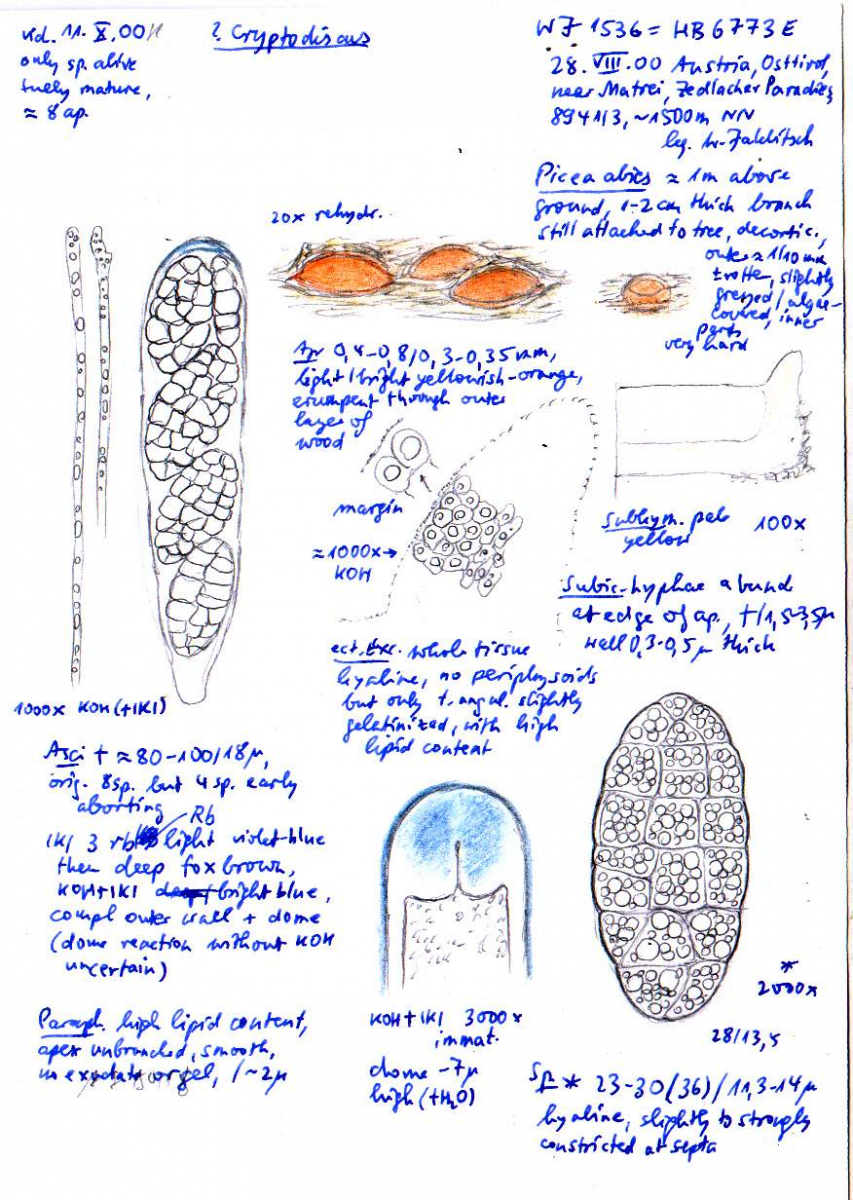 vid. 11. X. 00
only sp. alive
fully mature,
≈ 8 ap.
? Cryptodiscus
WJ 1536 = HB 6773 E
28. VIII. 00 Austria, Osttirol,
near Matrei, Zedlacher Paradies
8941/3, ~1500m NN
leg. W. Jaklitsch
Picea abies ≈ 1m above
ground, 1-2 cm thick branch
still attached to tree, decortic.,
outer ≈ 1/10 mm
± rotten, slightly
greyed / algae-
covered, inner
parts
very hard
20x rehydr.
Ap 0,4-0,8/0,3-0,35 mm,
light/bright yellowish-orange,
erumpent through outer
layer of
wood
margin
≈1000x →
KOH
Subhym. pale
yellow
100x
Subic.-hyphae abund
at edge of ap., †/1,5-3,5µ
wall 0,3-0,5µ thick
ect. Exc. whole tissue
hyaline, no periphysoids
but only t. angul. slightly
gelatinized, with high
lipid content
1000x KOH (+IKI)
Asci † ≈ 80-100/18µ,
orig. 8sp. but 4 sp. early
aborting
Rb
IKI 3 rb light violet-blue
then deep fox brown,
KOH+IKI bright blue,
compl outer wall + dome
(dome reaction without KOH
uncertain)
Paraph. high lipid content,
apex unbranched, smooth,
no exudate or gel, /~2µ
KOH+IKI 3000x
immat.
dome -7µ
high (+H2O)
*
2000x
28/13,5
Sp * 23-30(36)/11,3-14µ
hyaline, slightly to strongly
constricted at septa